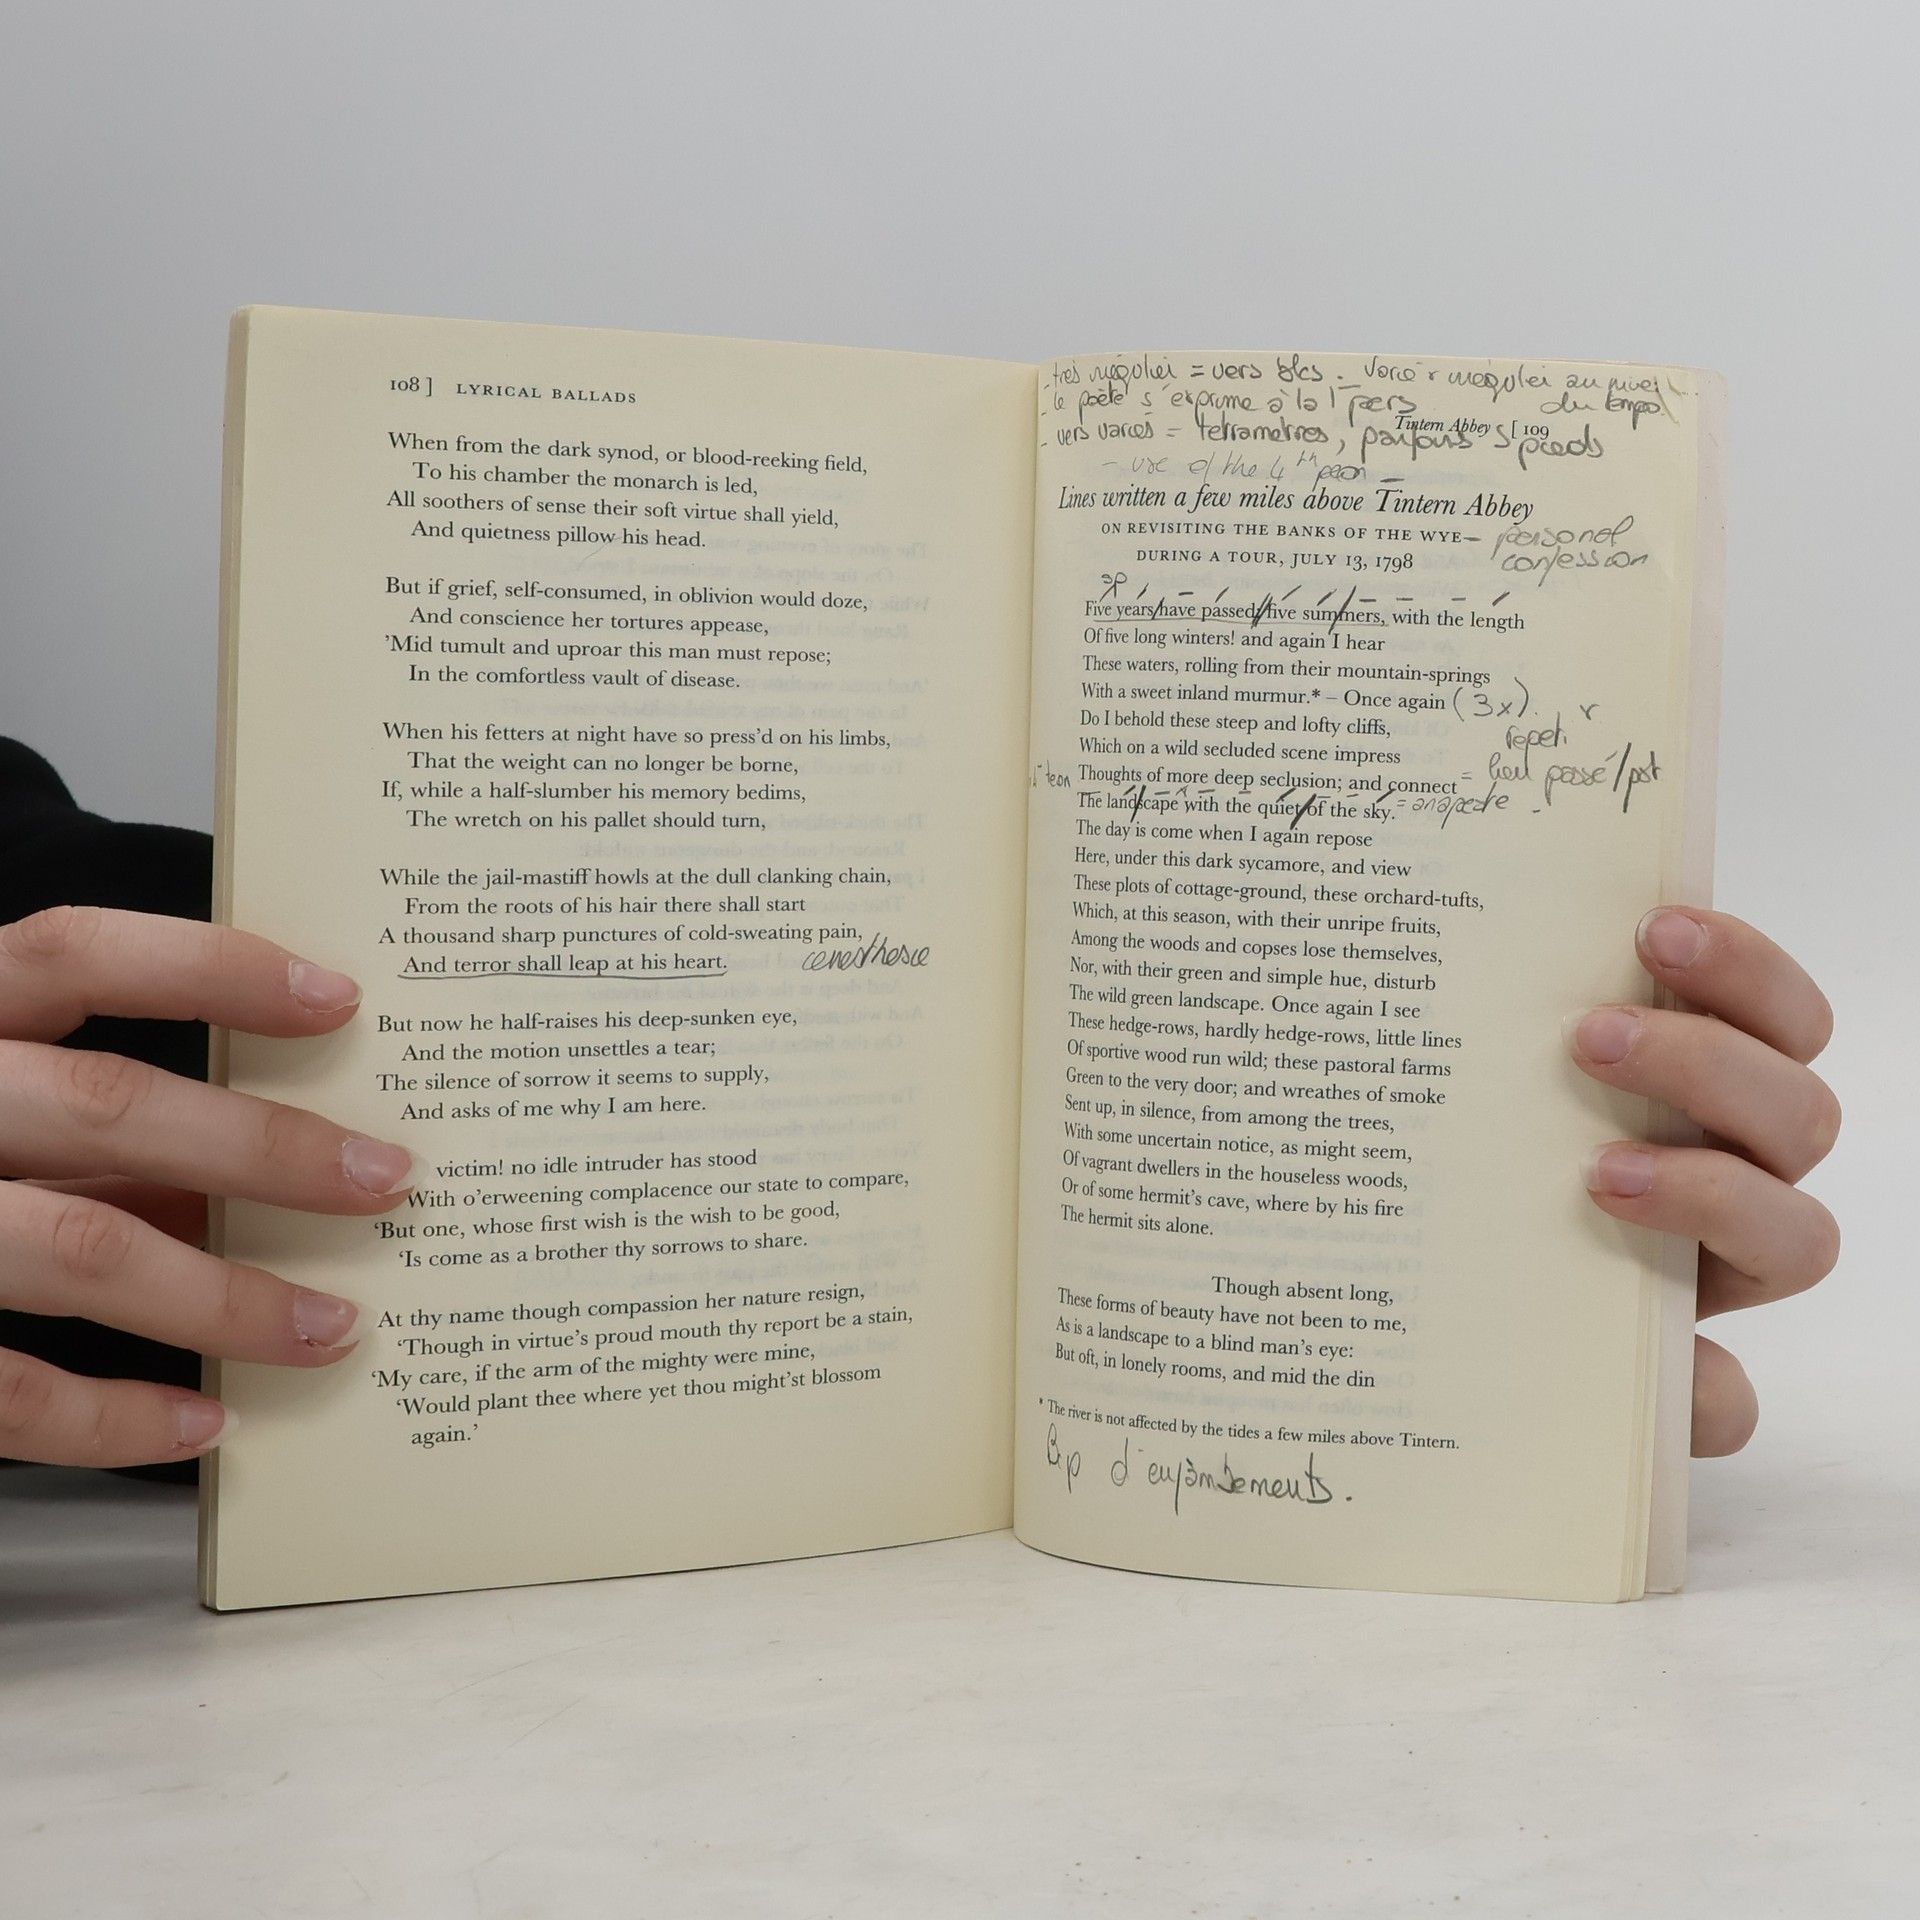 108 ] LYRICAL BALLADS
When from the dark synod, or blood-reeking field,
To his chamber the monarch is led,
All soothers of sense their soft virtue shall yield,
And quietness pillow his head.
But if grief, self-consumed, in oblivion would doze,
And conscience her tortures appease,
'Mid tumult and uproar this man must repose;
In the comfortless vault of disease.
When his fetters at night have so press'd on his limbs,
That the weight can no longer be borne,
If, while a half-slumber his memory bedims,
The wretch on his pallet should turn,
While the jail-mastiff howls at the dull clanking chain,
From the roots of his hair there shall start
A thousand sharp punctures of cold-sweating pain,
And terror shall leap at his heart.
But now he half-raises his deep-sunken eye,
And the motion unsettles a tear;
The silence of sorrow it seems to supply,
And asks of me why I am here.
victim! no idle intruder has stood
With o'erweening complacence our state to compare,
'But one, whose first wish is the wish to be good,
'Is come as a brother thy sorrows to share.
At thy name though compassion her nature resign,
'Though in virtue's proud mouth thy report be a stain,
'My care, if the arm of the mighty were mine,
'Would plant thee where yet thou might'st blossom
again.'
= vers
- le poète s'exprime à la 1 pers du tempo
Tintern Abbey [ 109
- vers variés = tetrametres, parfois 5 pieds
- use of the 4th peon
Lines written a few miles above Tintern Abbey
ON REVISITING THE BANKS OF THE WYE – personal
DURING A TOUR, JULY 13, 1798 confession
sp
Five years have passed; five summers, with the length
Of five long winters! and again I hear
These waters, rolling from their mountain-springs
With a sweet inland murmur.* – Once again (3x).
Do I behold these steep and lofty cliffs, repet.
Which on a wild secluded scene impress
Thoughts of more deep seclusion; and connect = lieu passé/pst
The landscape with the quiet of the sky. = anapeste
The day is come when I again repose
Here, under this dark sycamore, and view
These plots of cottage-ground, these orchard-tufts,
Which, at this season, with their unripe fruits,
Among the woods and copses lose themselves,
Nor, with their green and simple hue, disturb
The wild green landscape. Once again I see
These hedge-rows, hardly hedge-rows, little lines
Of sportive wood run wild; these pastoral farms
Green to the very door; and wreathes of smoke
Sent up, in silence, from among the trees,
With some uncertain notice, as might seem,
Of vagrant dwellers in the houseless woods,
Or of some hermit's cave, where by his fire
The hermit sits alone.
Though absent long,
These forms of beauty have not been to me,
As is a landscape to a blind man's eye:
But oft, in lonely rooms, and mid the din
* The river is not affected by the tides a few miles above Tintern.
Bcp d'enjambements.